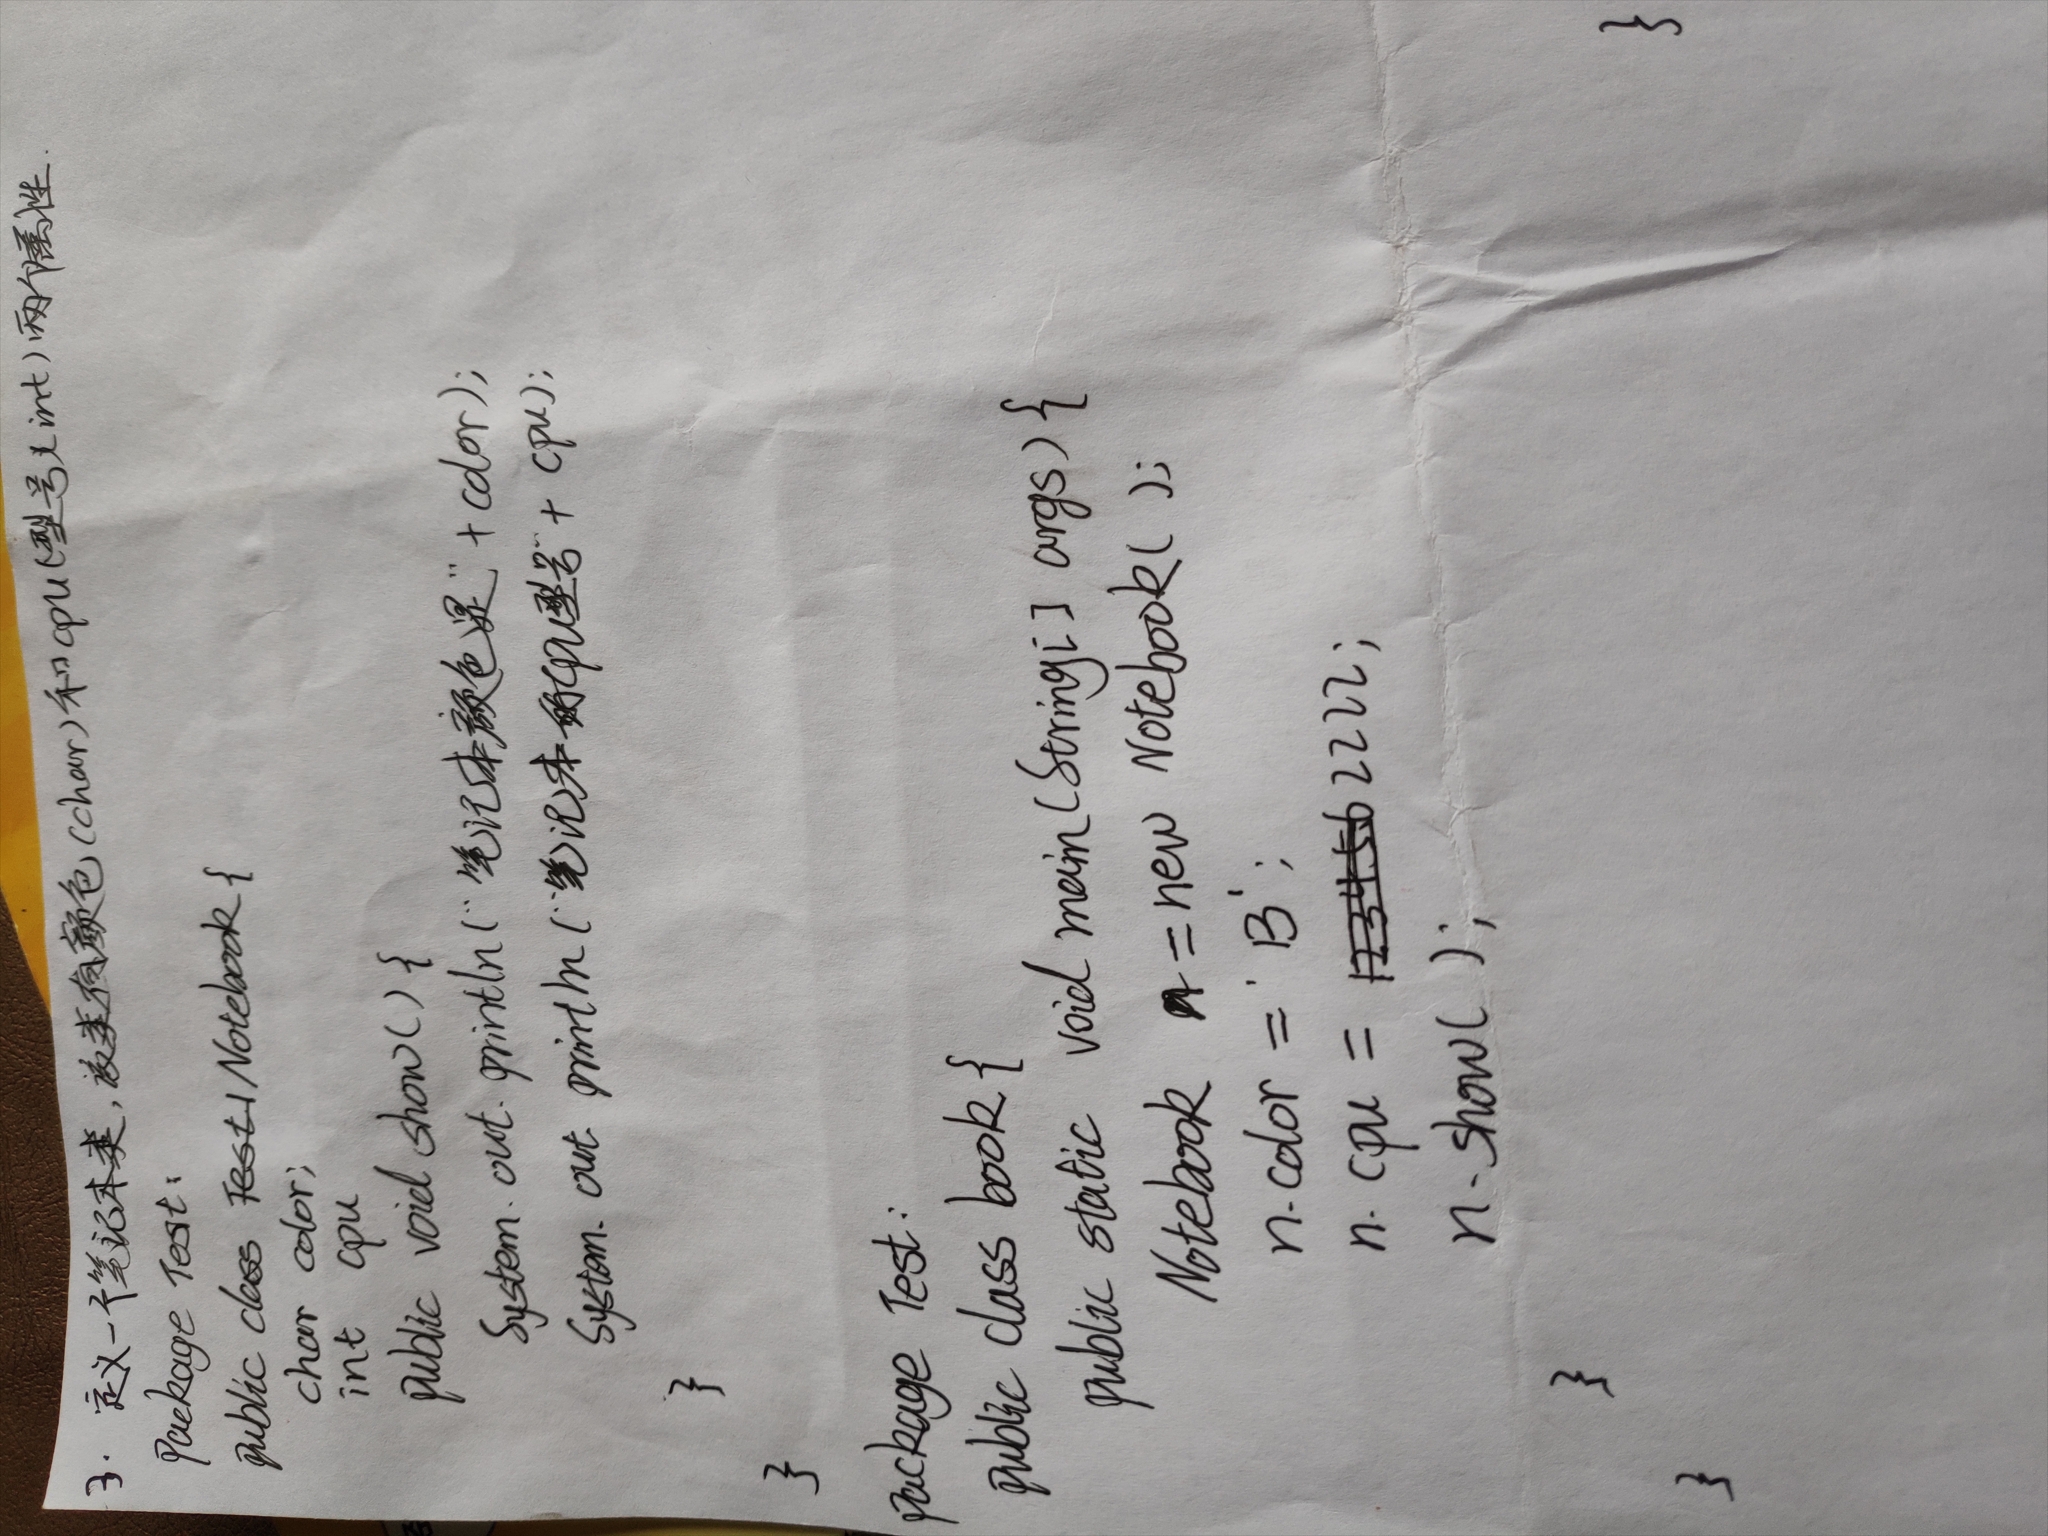 3. 定义一个笔记本类,该类有颜色(char)和cpu(型号)(int)两个属性.
package Test:
public class Test1 Notebook {
char color;
int cpu
public void show() {
System.out.println("笔记本颜色是"+color);
System.out.println("笔记本的cpu型号"+cpu);
}
}
package Test:
public class book {
public static void main(String[] args) {
Notebook n = new Notebook();
n.color = 'B';
n.cpu = 2222;
n.show();
}
}
}